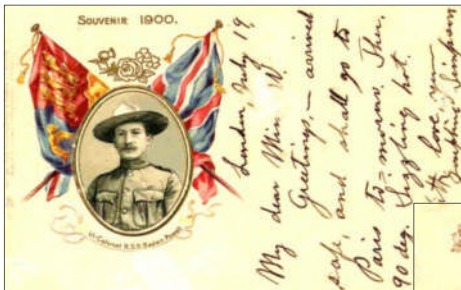 SOUVENIR 1900.
Lt-Colonel R.S.S. Baden-Powell
London, July 19
My dear Miss W.
Greetings, – arrived
safe, and shall go to
Paris to-morrow. Ther.
90 deg. Sizzling hot.
With love, yrs
Simpson